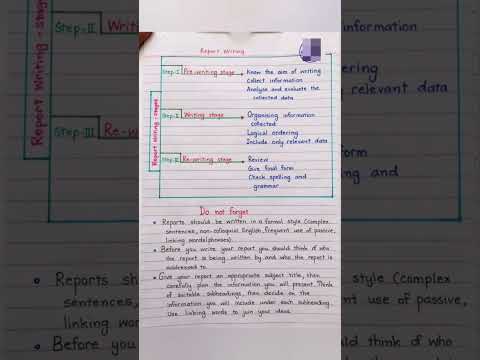 Report Writing
Report Writing - stages
Step-I Pre-writing stage
Know the aim of writing
Collect information
Analyse and evaluate the
collected data
Step-II Writing stage
Organising information
collected
Logical ordering
Include only relevant data
Step-III Re-writing stage
Review
Give final form
Check spelling and
grammar
Do not forget
• Reports should be written in a formal style (complex
sentences, non-colloquial English, frequent use of passive,
linking words/phrases).
• Before you write your report you should think of who
the report is being written by and who the report is
addressed to.
• Give your report an appropriate subject title, then
carefully plan the information you will present. Think
of suitable subheadings, then decide on the
information you will include under each subheading.
Use linking words to join your ideas.
Report Writing - stages
Step-II
Step-III
information
relevant data
and
• Reports
style (complex
sentences,
use of passive,
linking
• Before you
think of who